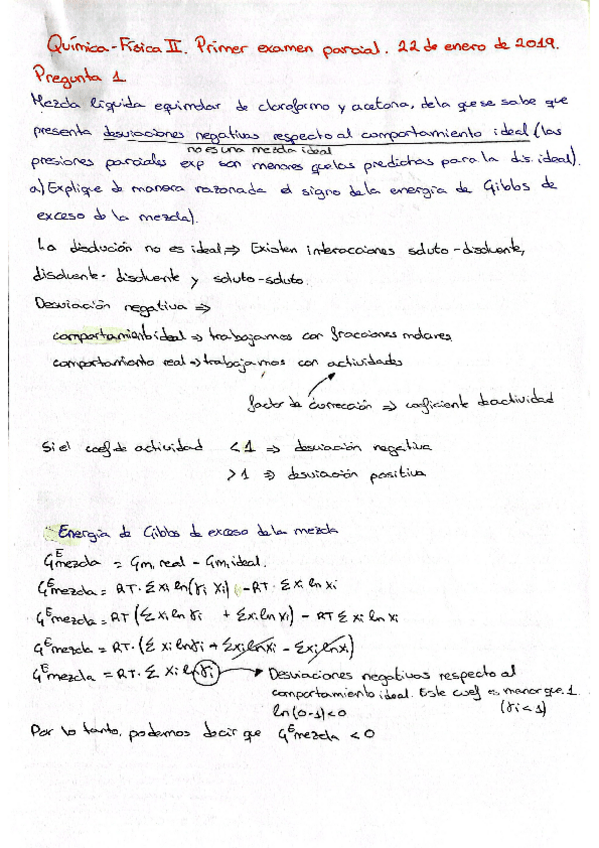 Química-Física II. Primer examen parcial. 22 de enero de 2019.
Pregunta 1.
Mezcla líquida equimolar de cloroformo y acetona, de la que se sabe que
presenta desviaciones negativas respecto al comportamiento ideal (las
no es una mezcla ideal
presiones parciales exp son menores que las predichas para la dis. ideal).
a) Explique de manera razonada el signo de la energía de Gibbs de
exceso de la mezcla).
La disolución no es ideal ⇒ Existen interacciones soluto-disolvente,
disolvente-disolvente y soluto-soluto.
Desviación negativa ⇒
comportamiento ideal ⇒ trabajamos con fracciones molares.
comportamiento real ⇒ trabajamos con actividades
factor de corrección ⇒ coeficiente de actividad
Si el coef de actividad < 1 ⇒ desviación negativa
> 1 ⇒ desviación positiva
Energía de Gibbs de exceso de la mezcla
G^E mezcla = Gm, real - Gm, ideal.
G^E mezcla = RT · Σ xi ln(γi xi) - RT · Σ xi ln xi
G^E mezcla = RT (Σ xi ln γi + Σ xi ln xi) - RT Σ xi ln xi
G^E mezcla = RT · (Σ xi ln γi + Σ xi ln xi - Σ xi ln xi)
G^E mezcla = RT · Σ xi ln γi → Desviaciones negativas respecto al
comportamiento ideal. Este coef es menor que 1.
ln(0-1) < 0 (γi < 1)
Por lo tanto, podemos decir que G^E mezcla < 0